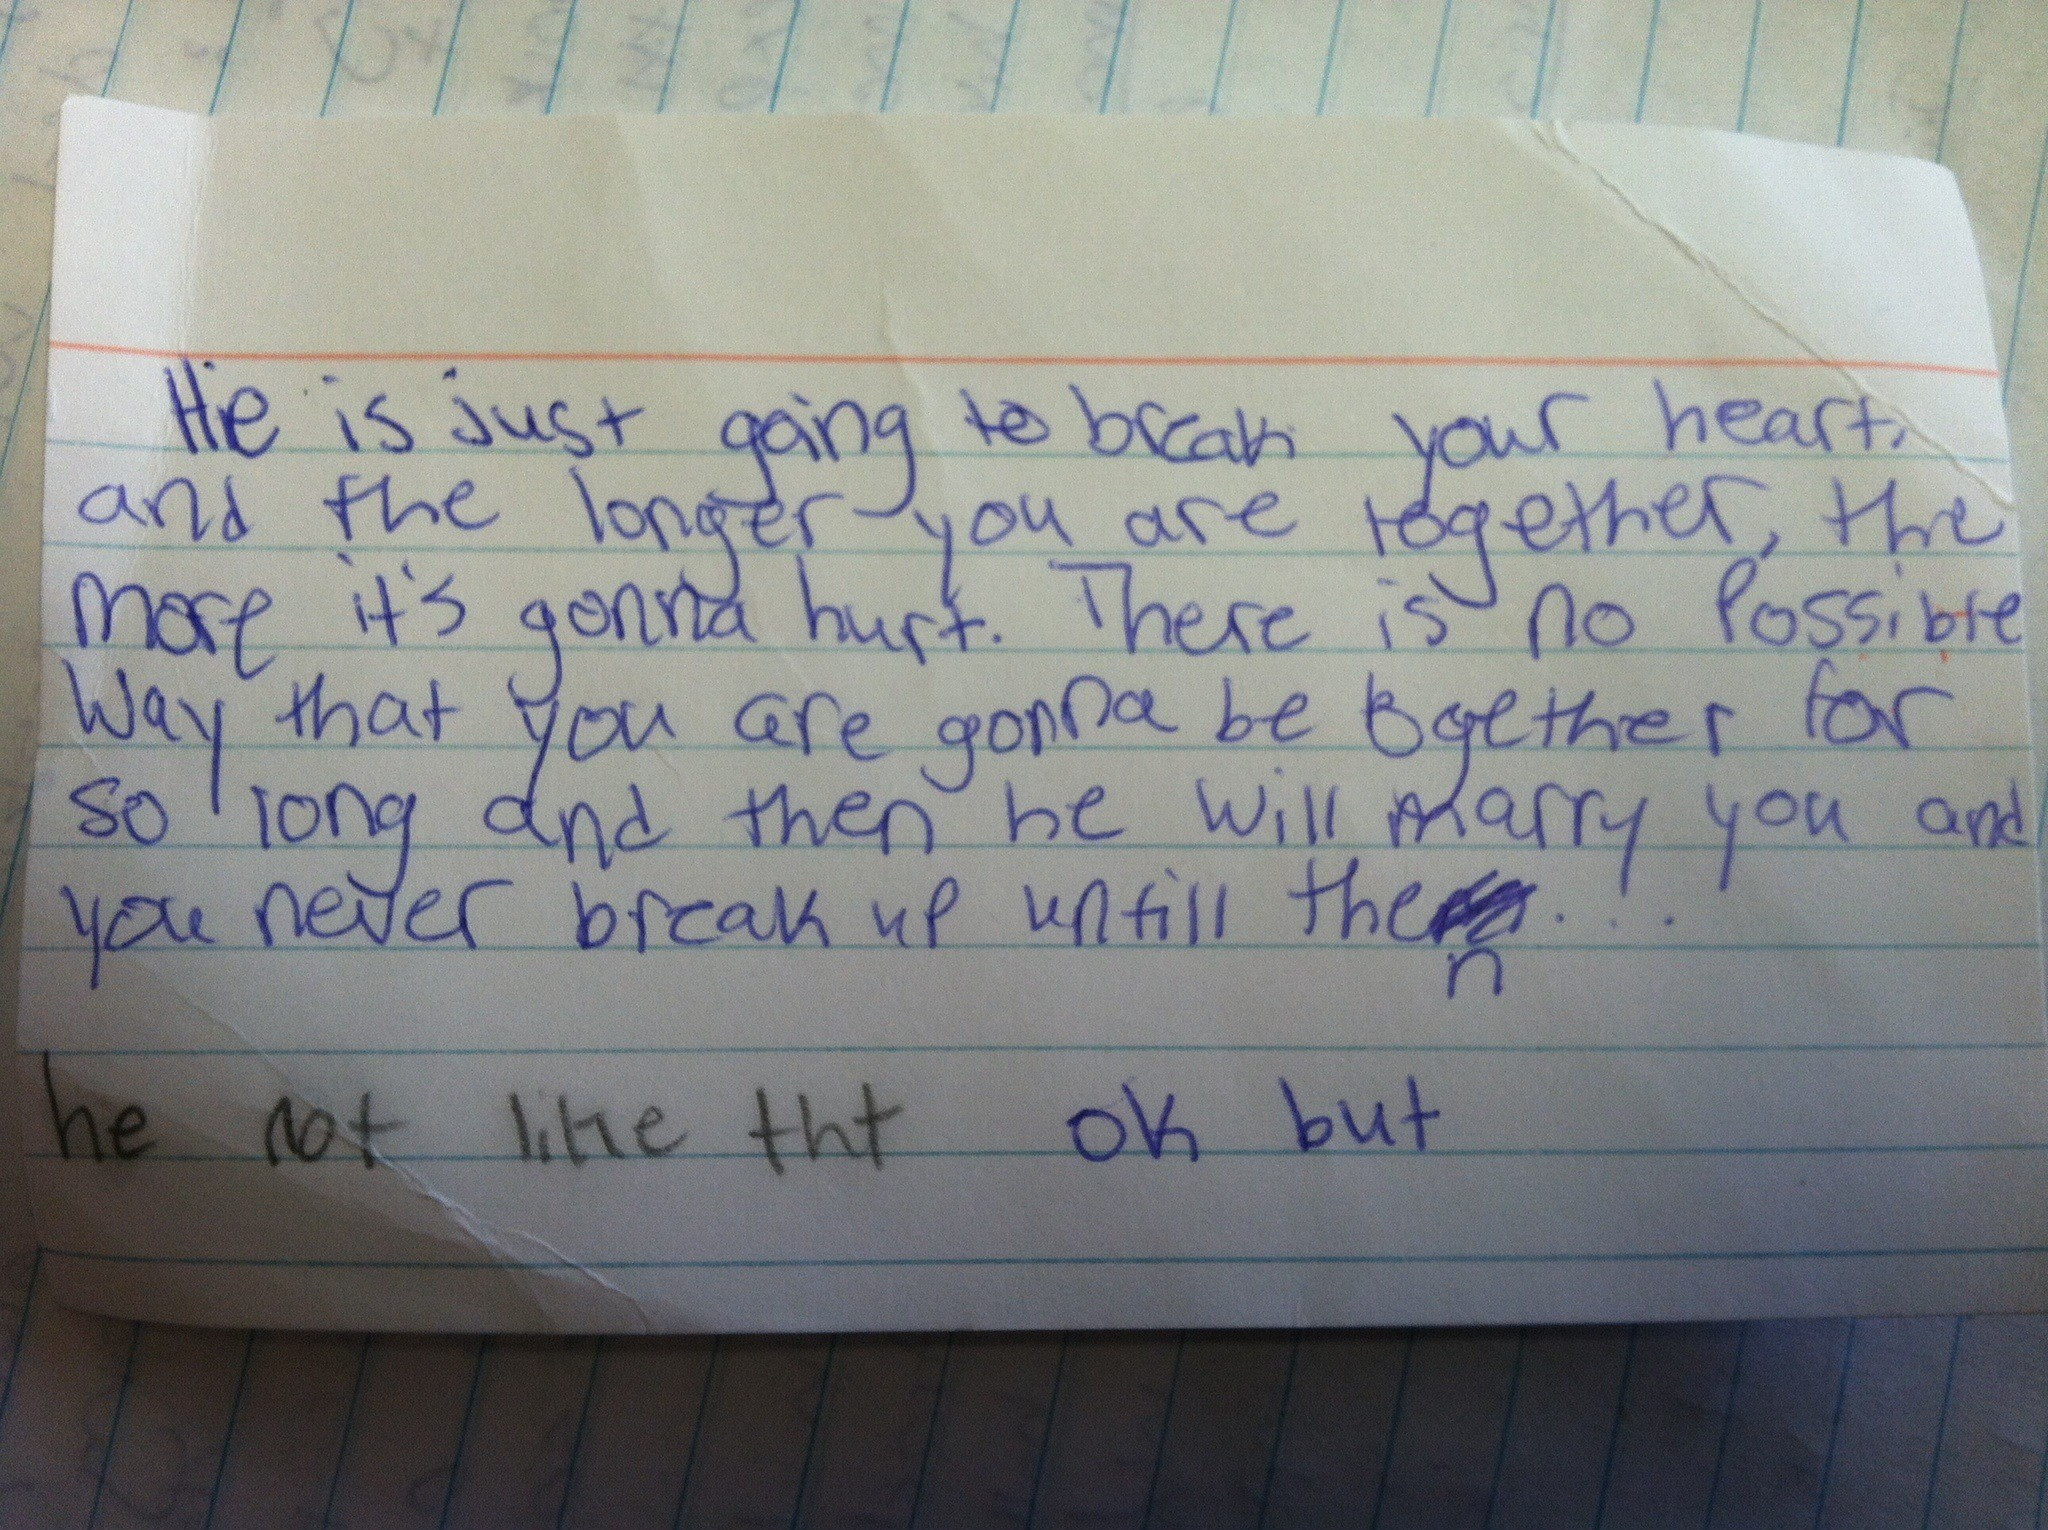 He is just going to break your heart.
and the longer you are together, the
more it's gonna hurt. There is no Possible
Way that you are gonna be together for
so long and then he will marry you and
you never break up untill then...
he not like tht ok but